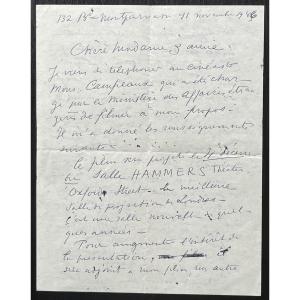 132 Bd Montparnasse 11 novembre 1946
Chère Madame & amie:
Je viens de téléphoner au cinéaste
Mons. Campeaux qui a été char-
gé par le Ministère des Affaires étran
gères de filmer à mon propos
Il m'a donné les renseignements
suivants:
Le film sera projeté le
Salle HAMMERS Theatre
Oxford Street - la meilleure
salle de projection de Londres -
C'est une salle nouvelle quel-
ques années -
Pour augmenter l'intérêt de
la présentation,
sera adjoint à mon film un autre